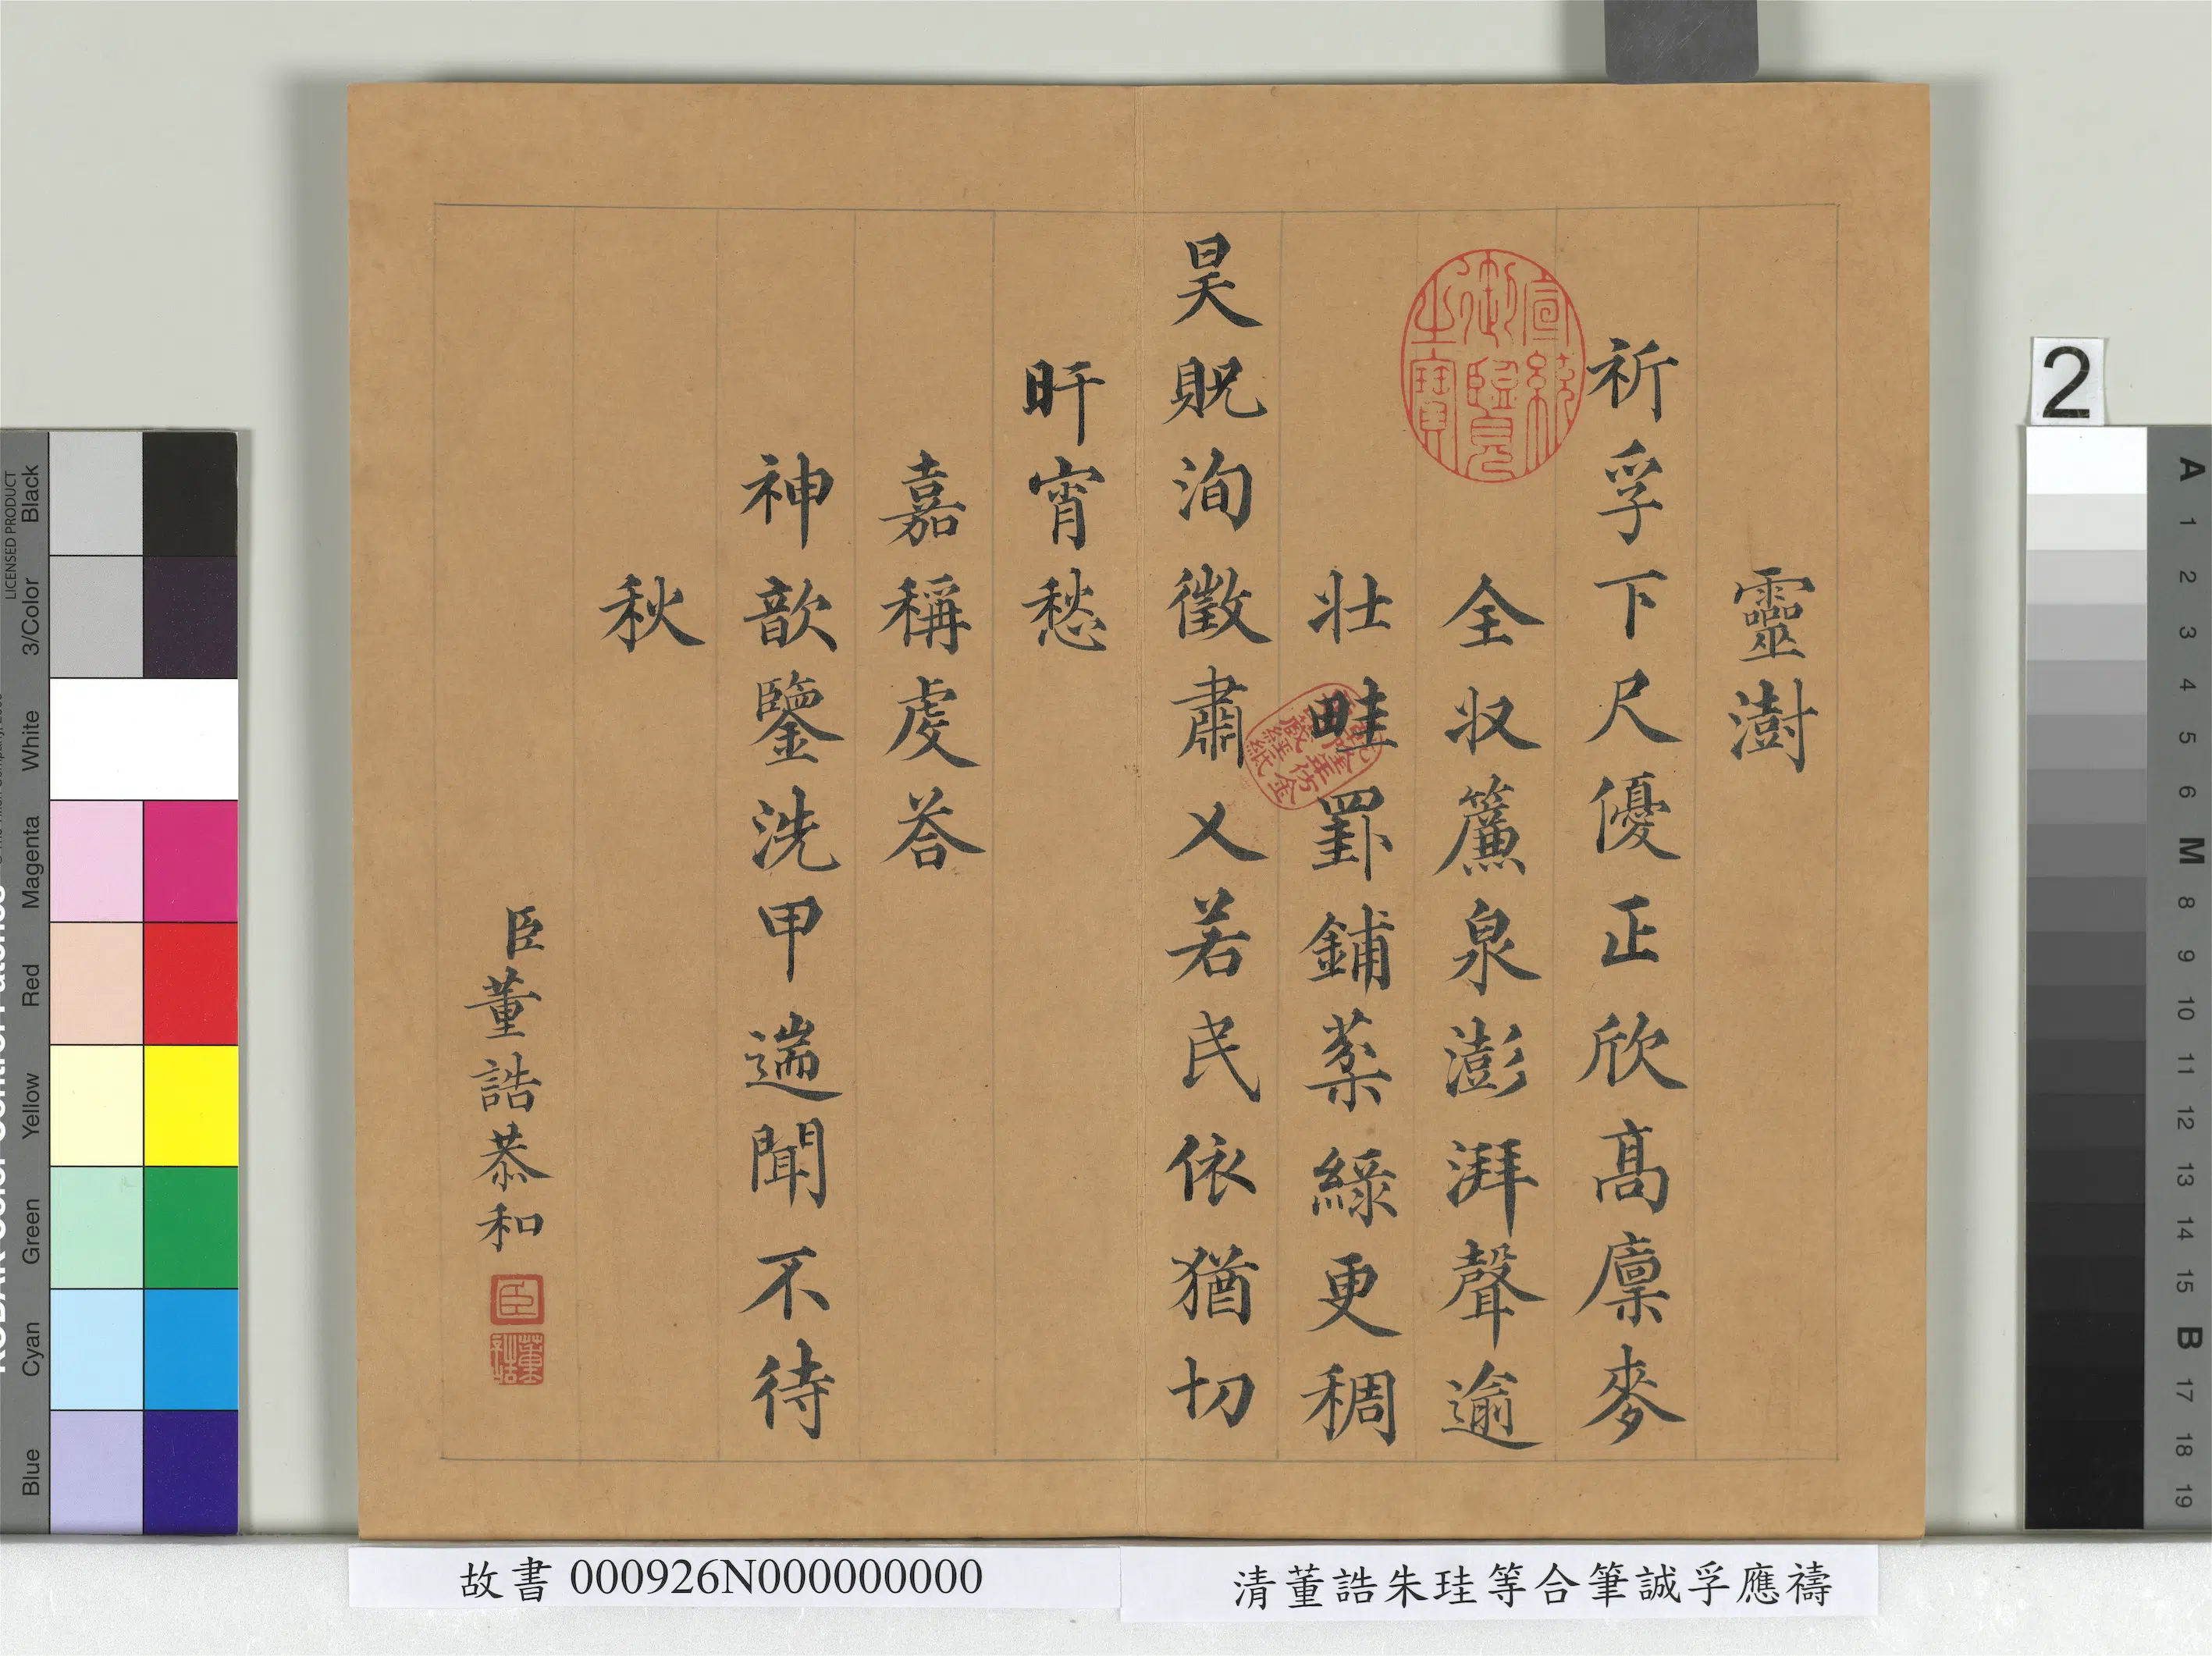 靈澍
祈孚下尺優正欣高廩麥
全収簾泉澎湃聲逾
壯畦罫鋪棻綠更稠
昊貺洵徵肅乂若民依猶切
旰宵愁
嘉稱虔荅
神歆鑒洗甲遄聞不待
秋
臣董誥恭和
臣
董誥
宣統御覽之寶
乾隆年仿金粟山藏經紙
故書 000926N000000000
清董誥朱珪等合筆誠孚應禱
2
LICENSED PRODUCT
Black
3/Color
White
Magenta
Red
Yellow
Green
Cyan
Blue
A
1
2
3
4
5
6
M
8
9
10
11
12
13
14
15
B
17
18
19